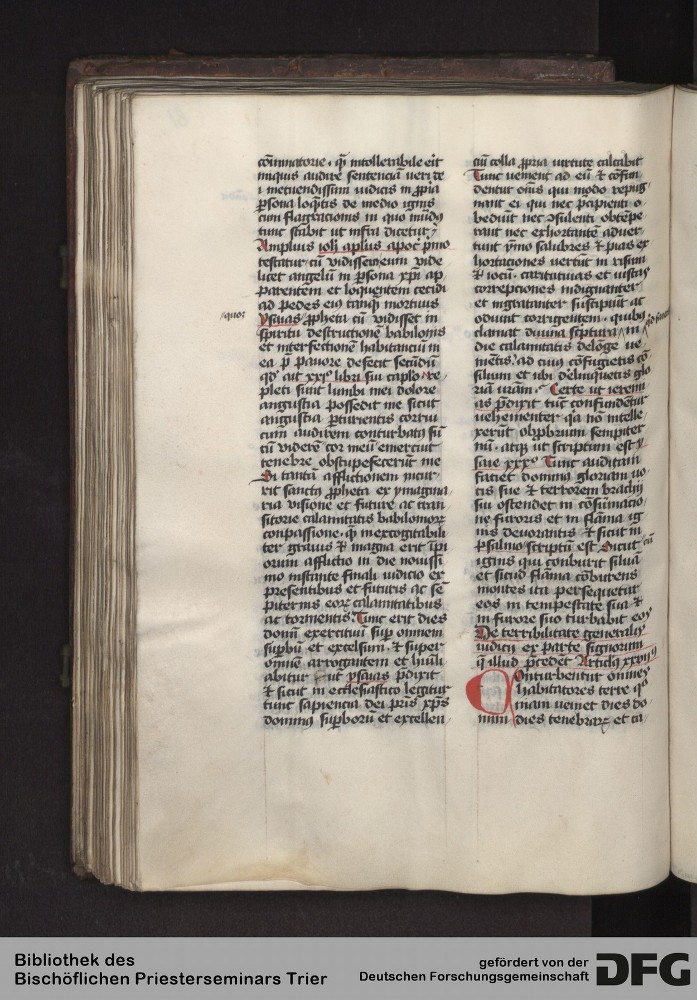 cōminatorie · qͣ intollerabile erit
iniquis audire sentenciā veri te
i metuendissim iudicis in ꝓpia
ꝑsona loqn̄tis de medio ignis
cum flagracionis in quo mūdꝰ
tunc stabit ut infra dicetur
Amplius ioh̄ aplus apoc pmo
testatur cū vidisset eum vide
licet angelū in ꝑsona xp̄i ap
parentem et loquentem cecidi
ad pedes eiꝰ tamqͣ mortuus
Ysaias ꝓpheta cū vidisset in
spiritu destructionē babilonis
et interfectionē habitanciū in
ea p̄ pauore defecit secūdū
qd' ait xxiº libri sui caplo re
pleti sunt lumbi mei dolore
angustia possedit me sicut
angustia ꝑturientis corrui
cum audirem conturbatꝰ sū
cū viderē cor meū emercuit
tenebre obstupefecerūt me
Si tantā afflictionem incur
rit sanctꝰ ꝓpheta ex ymagina
ria visione et future ac tran
sitorie calamitatis babilonioꝝ
conpassione · qͣ inexcogitabili
ter grauis et magna erit īpi
orum afflictio in die nouissi
mo instante finali iudicio ex
presentibus et futuris ac sē
piternis eoꝝ calamitatibus
ac tormentis · Tunc erit dies
domī exercituū suꝑ omnem
suꝑbū et excelsum · et super
omnē arrogantem et huīli
abitur ut ysaias p̄dixit
et sicut in ecclesiastico legitur
tunc sapiencia dei pr̄is xp̄s
dominꝰ suꝑborū et excellen
ciū colla ꝓpria virtute calcabit
Tunc venient ad eū et cōfun
dentur om̄s qui modo repug
nant ei qui nec p̄cipienti o
bediūt nec ꝯsulenti obtēpe
rant nec exhortante aduer
tunt ymo salubres et pias ex
hortaciones vertūt in risum
et iocū · caritatiuas et iustas
correpciones indignanter
et ingratanter suscipiūt ac
odiunt corrigentem · quibꝰ
clamat diuina sc̄ptura in
die calamitatis delōge ve
niētis · ad cuiꝰ cōfugietis cō
silium et ubi delinquetis glo
riā vr̄am · Certe ut ieremi
as p̄dixit tūc confundentur
vehementer qͣ nō intelle
xerūt obprobrium sempiter
nū · atqꝫ ut scriptum est y
saie xxxº Tunc auditam
faciet dominꝰ gloriam vo
cis sue et terrorem brachij
sui ostendet in cōsūmacio
ne furoris et in flāma ig
nis deuorantis et sicut in
psalmo scriptū est Sicut
ignis qui conburit siluā
et sicud flāma cōburens
montes ita persequetur
eos in tempestate sua et
in furore suo turbabit eos
De terribilitate generalis
iudicij ex parte signorum
q̄ illud p̄cedet Articlꝰ xxvijꝰ
Conturbentur omnes
habitatores terre qͦ
niam veniet dies do
mini dies tenebraꝝ et ca
Bibliothek des
Bischöflichen Priesterseminars Trier
gefördert von der
Deutschen Forschungsgemeinschaft
DFG